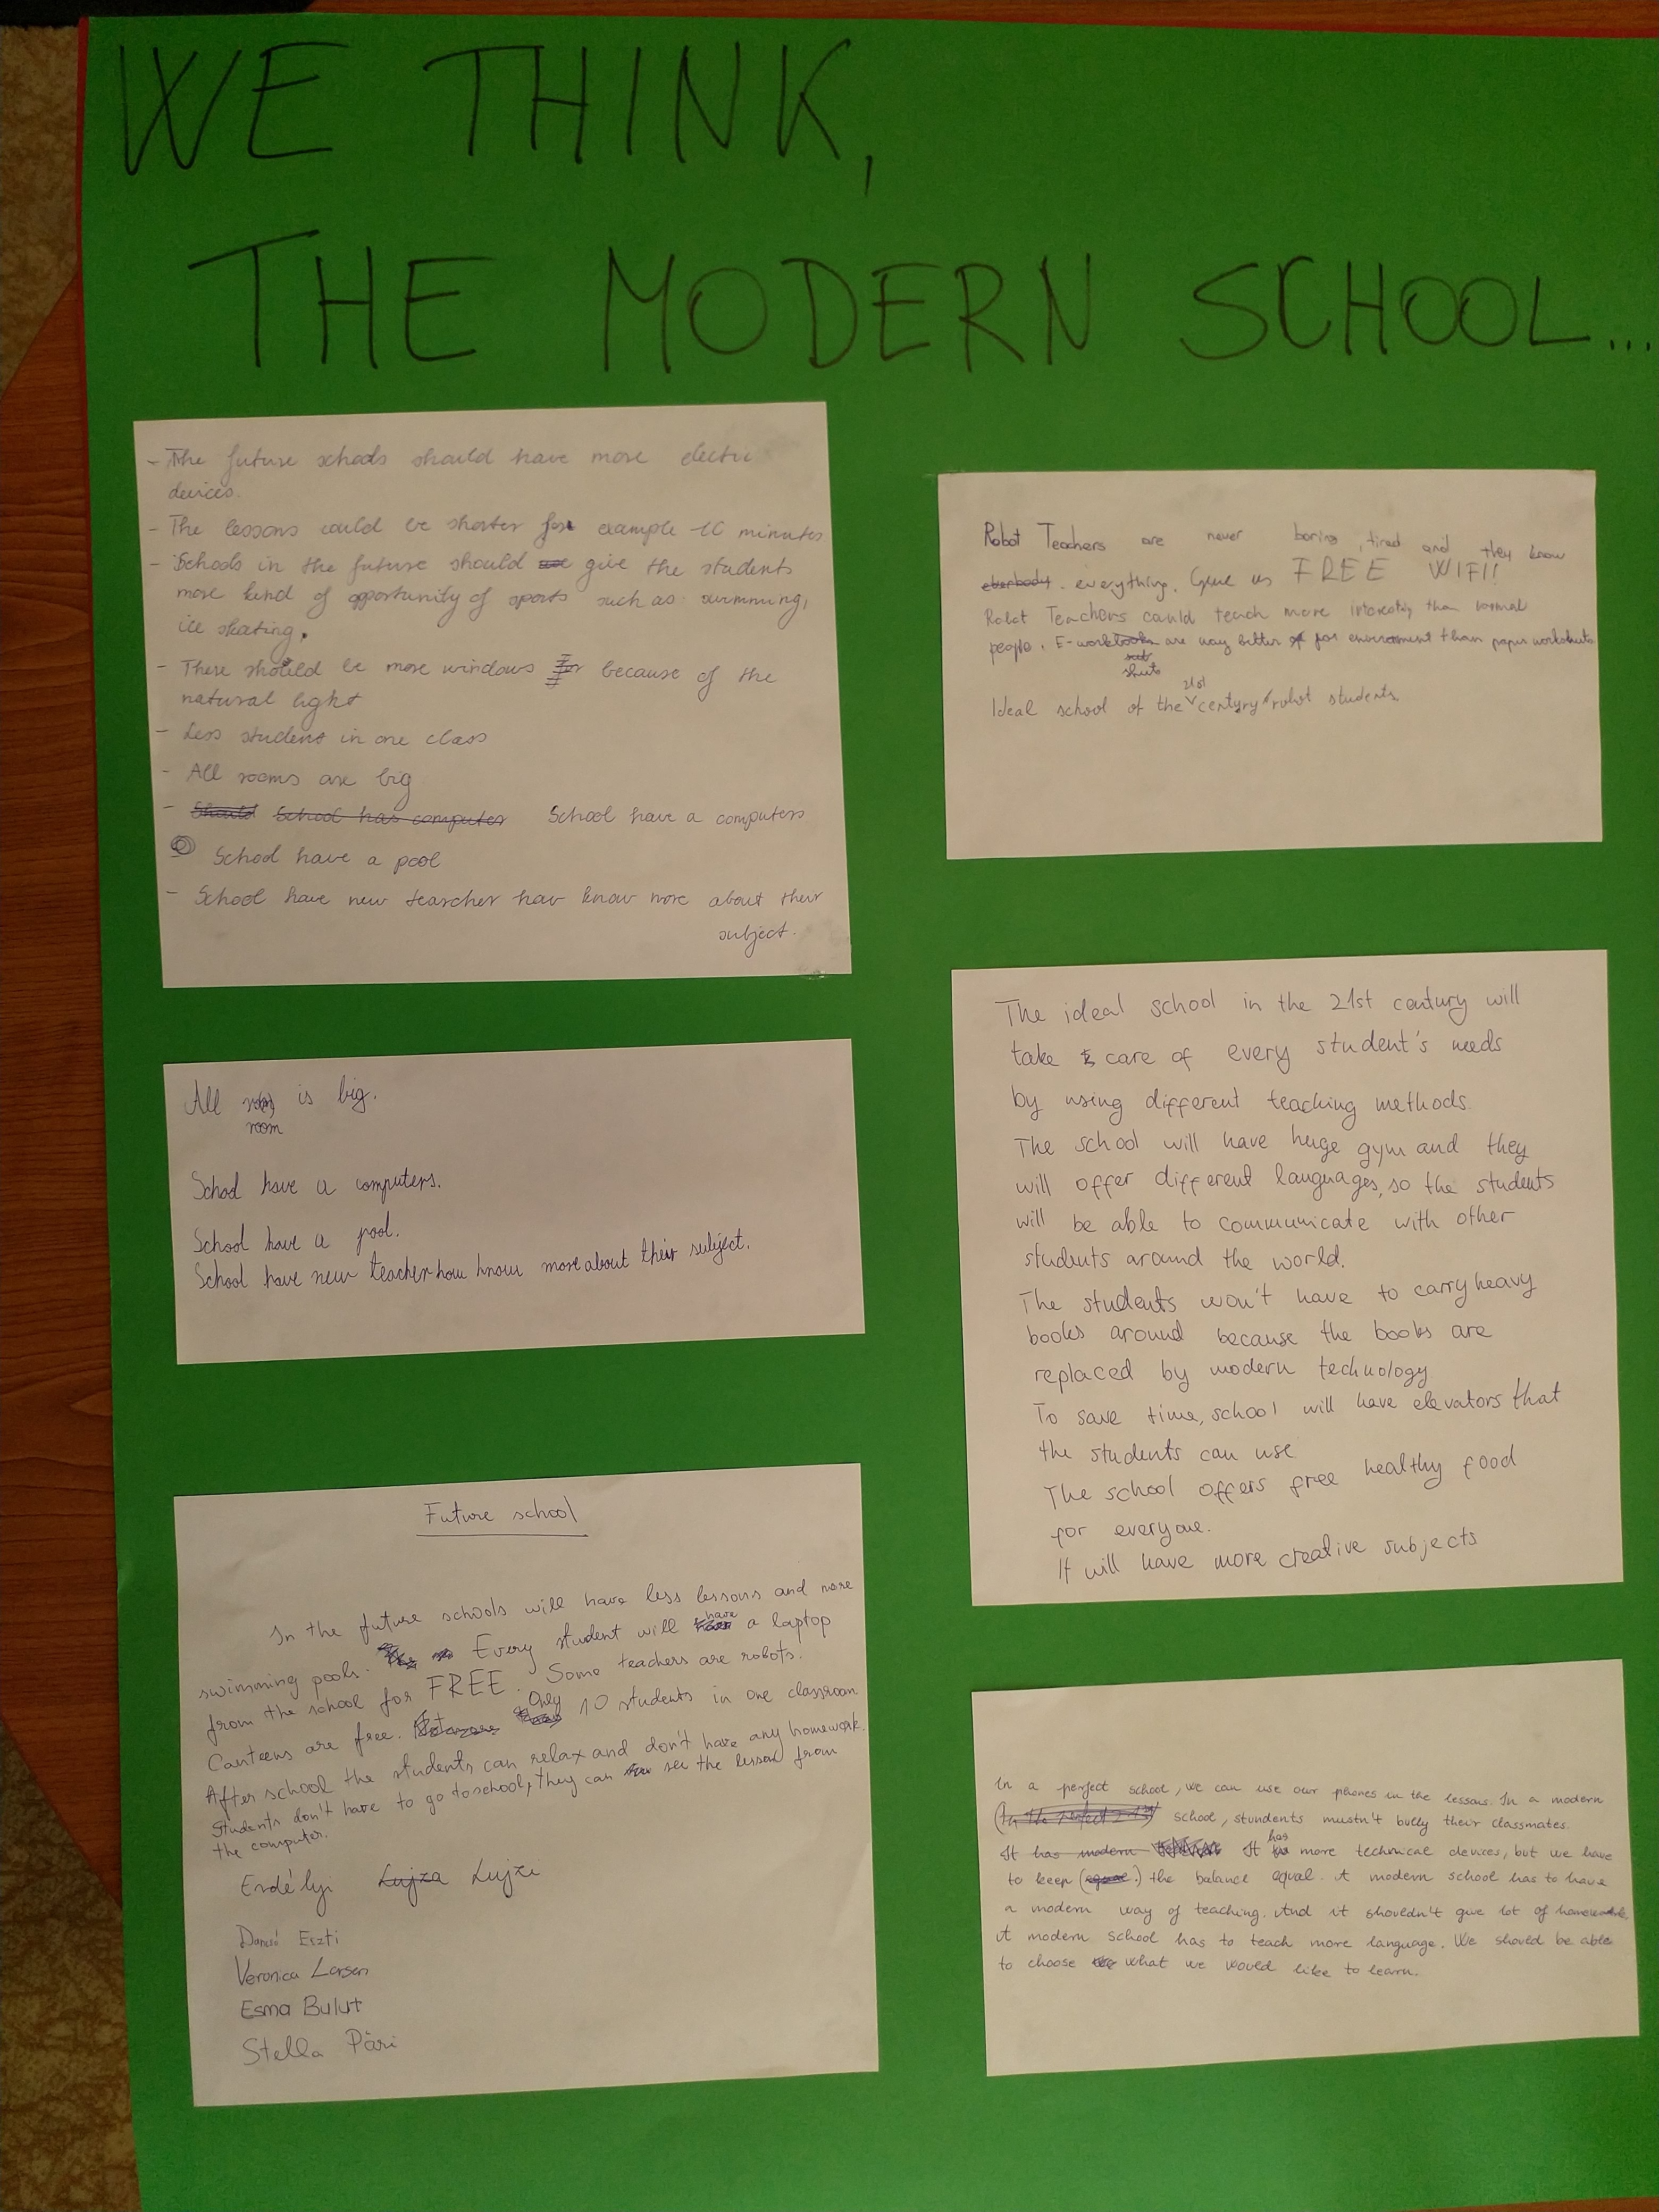 WE THINK,
THE MODERN SCHOOL...
- The future schools should have more electric
devices.
- The lessons could be shorter for example 10 minutes
- Schools in the future should give the students
more kind of opportunity of sports such as swimming,
ice skating.
- There should be more windows because of the
natural light
- Less student in one class
- All rooms are big
- Should School has computer School have a computers
School have a pool
- School have new tearcher hav know more about their
subject.
All is big.
room
School have a computers.
School have a pool.
School have new teacher how know more about their subject.
Future school
In the future schools will have less lessons and more
swimming pools. Every student will have a laptop
from the school for FREE. Some teachers are robots.
Canteens are free. Only 10 students in one classroom.
After school the students can relax and don't have any homework.
Students don't have to go to school, they can see the lesson from
the computer.
Erdélyi Lujza Lujzi
Eszti
Veronica Larsen
Esma Bulut
Stella Päri
Robot Teachers are never boring, tired and they know
everything. Give us FREE WIFI!
Robot Teachers could teach more interesting than normal
people. E-workbooks are way better for environment than paper worksheets
sheets
Ideal school of the 21st century robot students.
The ideal school in the 21st century will
take care of every student's needs
by using different teaching methods.
The school will have huge gym and they
will offer different languages, so the students
will be able to communicate with other
students around the world.
The students won't have to carry heavy
books around because the books are
replaced by modern technology
To save time, school will have elevators that
the students can use
The school offers free healthy food
for everyone.
It will have more creative subjects
In a perfect school, we can use our phones in the lessons. In a modern
school, stundents mustn't bully their classmates.
It has modern It has more technical devices, but we have
to keep the balance equal. A modern school has to have
a modern way of teaching. And it shouldn't give lot of homework.
A modern school has to teach more language. We should be able
to choose what we would like to learn.